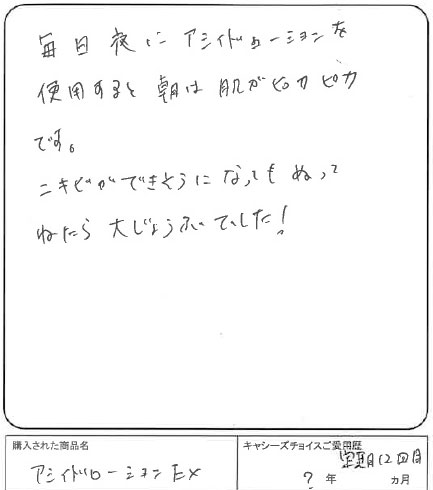 毎日夜にアシィドローションを
使用すると朝は肌がピカピカ
です。
ニキビができそうになってもぬって
ねたら大じょうぶでした!
購入された商品名
アシィドローションEX
キャシーズチョイスご愛用歴
定期12回目
? 年 カ月